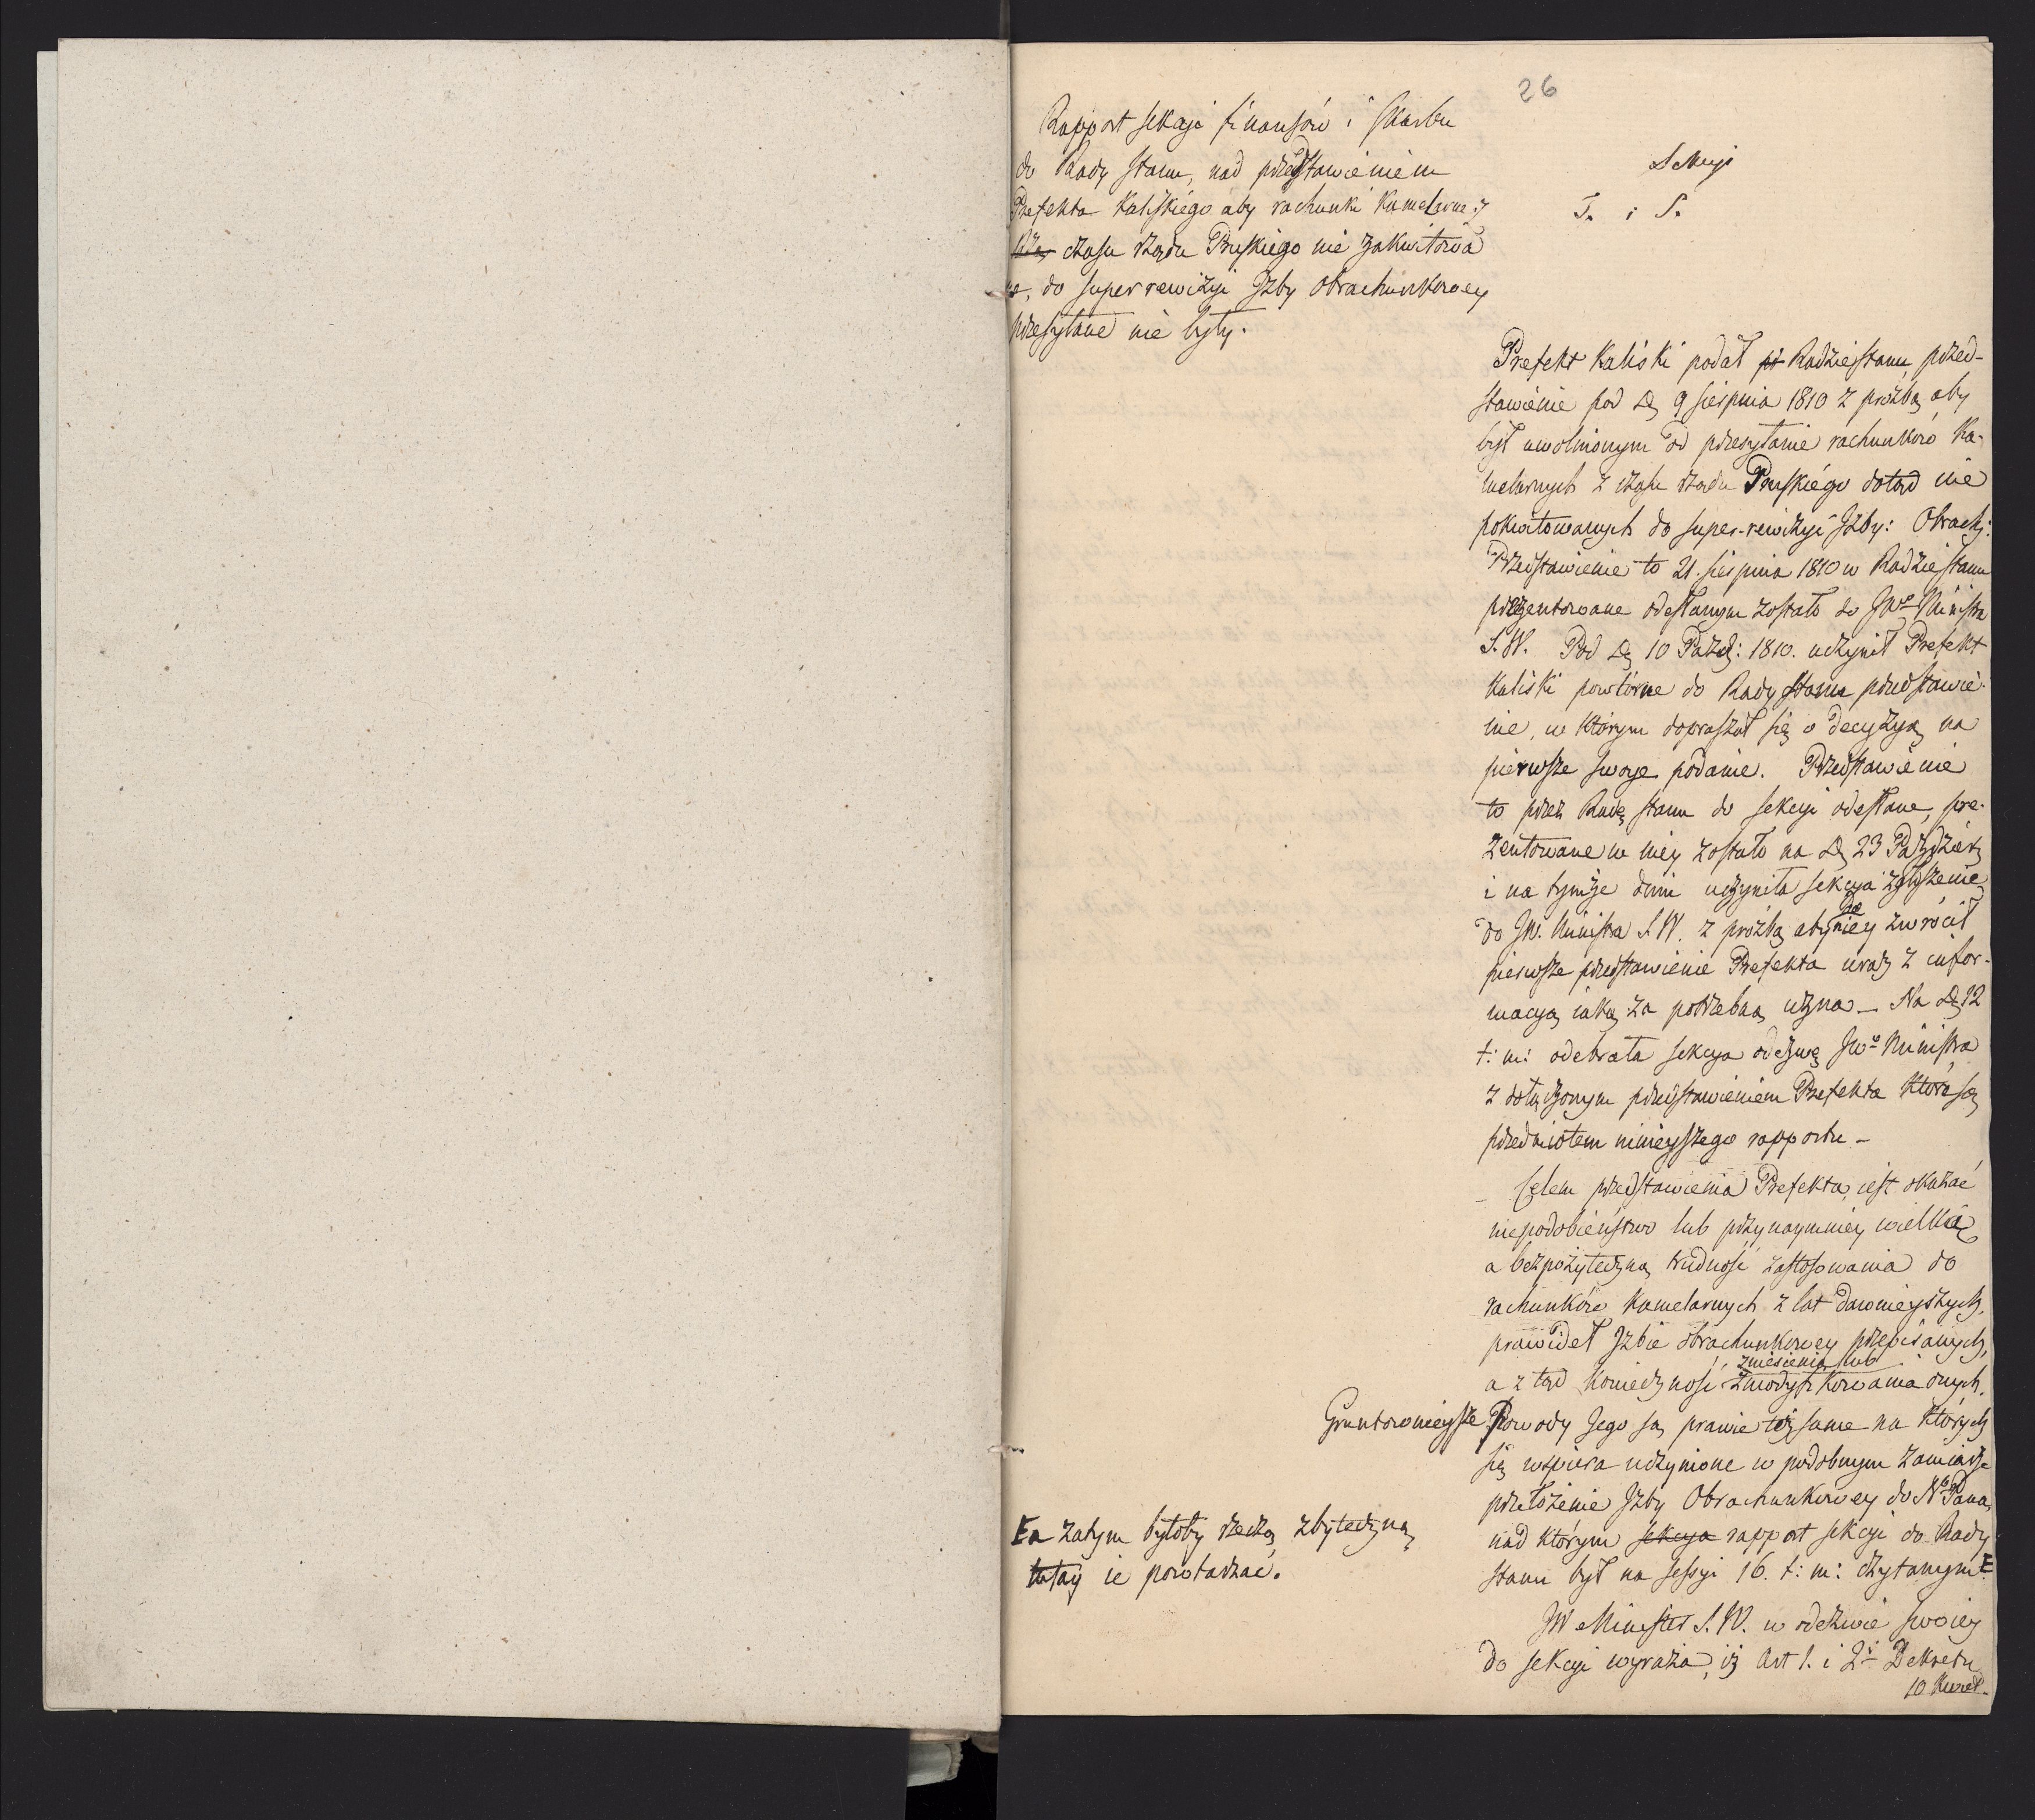 26
Rapport sekcji finansów i skarbu
do Rady stanu, nad przedstawieniem
Prefekta Kaliskiego aby rachunki Kamelarne z
czasu rządu Pruskiego nie zakwitowa
ne, do superrewizyi Jzby Obrachunkowey
przesyłane nie były.
Sekcyi
F. i S.
Prefekt Kaliski podał Radzie stanu, przed-
stawienie pod D. 9 sierpnia 1810 z proźbą aby
był uwolnionym od przesyłanie rachunków Ka-
melarnych z czasu rządu Pruskiégo dotąd nie
pokwitowanych do super-rewizyi Jzby: Obrach:
Przedstawienie to 21. sierpnia 1810 w Radzie stanu
prezentowane odesłanym zostało do JWo Ministra
S. W. Pod D. 10 Paźdz: 1810. uczynił Prefekt
Kaliski powtórne do Rady stanu przedstawie-
nie, w którym dopraszał się o decyzyą na
pierwsze swoje podanie. Przedstawienie
to przez Radę stanu do sekcyi odesłane, pre-
zentowane w niey zostało na D. 23 Paźdźier.
i na tymże dniu uczyniła sekcya zgłoszenie
do JW. Ministra S. W. z proźbą aby do niey zwrócił
pierwsze przedstawienie Prefekta wraz z infor-
macyą iaką za potrzebną uzna — Na D. 12
t: m: odebrała sekcya odezwę JWo Ministra
z dołączonym przedstawieniem Prefekta które są
przedmiotem nineyszego rapportu —
— Celem przedstawienia Prefekta, iest okazać
niepodobieństwo lub przynaymniey wielką
a bezpożyteczną trudność zastosowania do
rachunków Kamelarnych z lat dawnieyszych,
prawideł Jzbie obrachunkowey przepisanych,
zniesienia lub
a z tąd konieczność zmodyfikowania onych.
Gruntownieysze Powody Jego są prawie też same na których
się wspiera uczynione w podobnym zamiarze
przełożenie Jzby Obrachunkowey do No Pana,
nad którym sekcya rapport sekcyi do Rady
stanu był na sessyi 16. t: m: czytanym F
F a zatym byłoby rzeczą zbyteczną
tutay ie powtarzać.
JW Minister S. W. w odezwie swoiey
do sekcyi wyraża, iż Art 1. i 2. Dekretu
10 Kwiet-